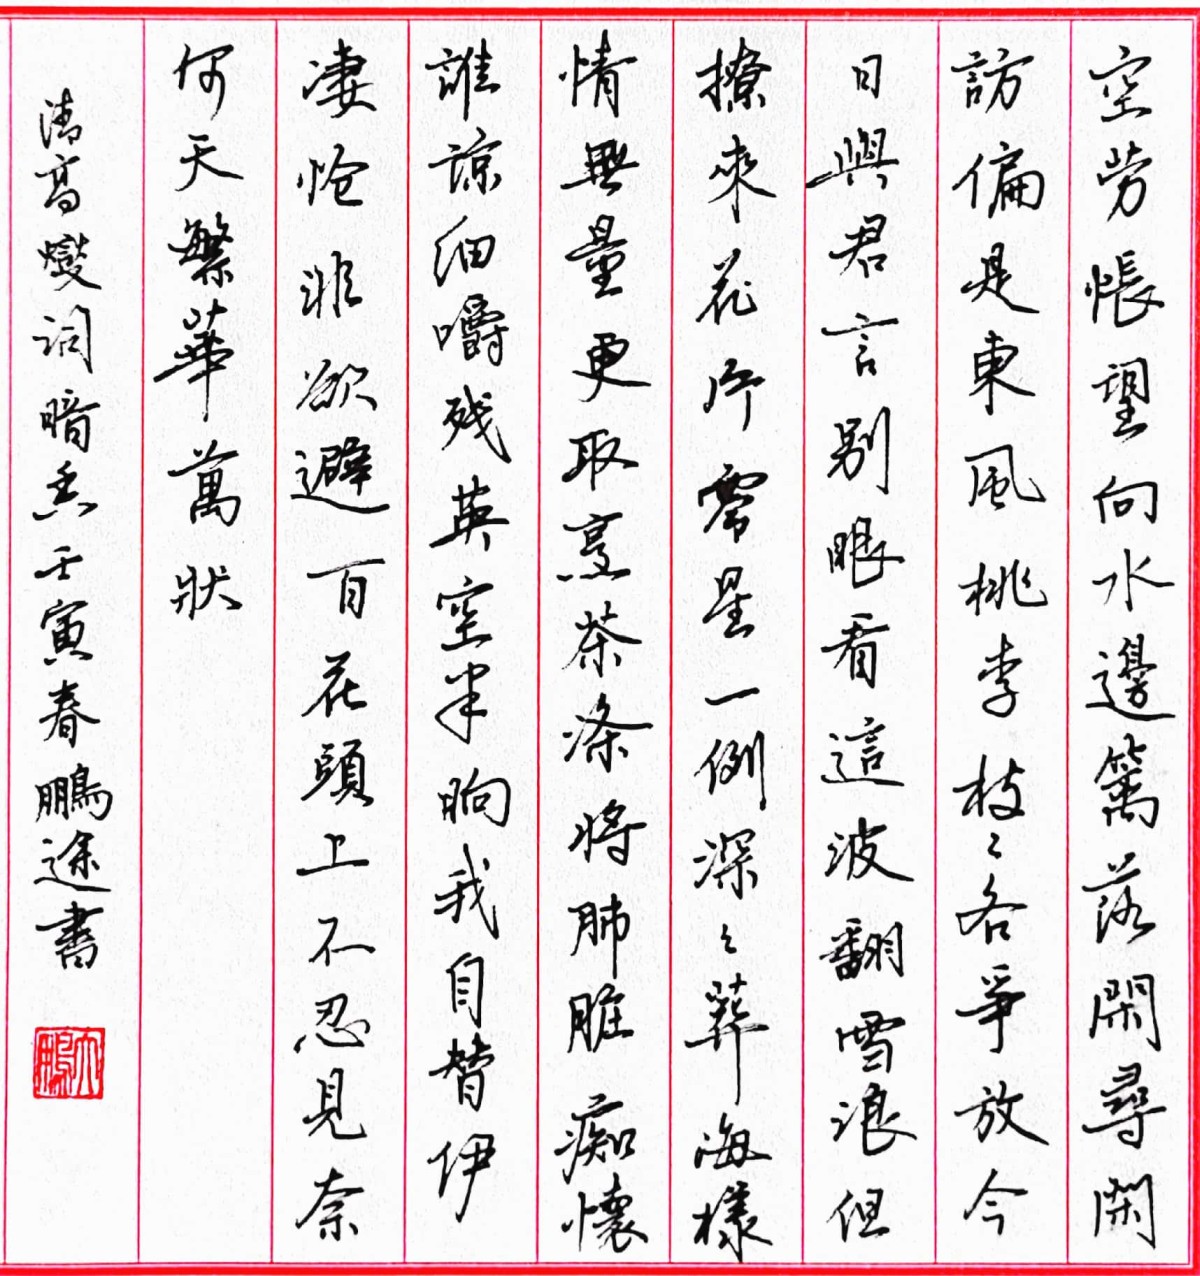 空劳悵望向水邊篱落閑尋閑
訪偏是東風桃李枝々各爭放今
日與君言别眼看這波翻雪浪但
撩來花片零星一例深々葬海樣
情無量更取烹茶滌將肺腑痴懷
誰諒細嚼残英空半晌我自替伊
凄怆非欲避百花頭上不忍見奈
何天繁華萬狀
清高燮词暗香壬寅春鵬途書